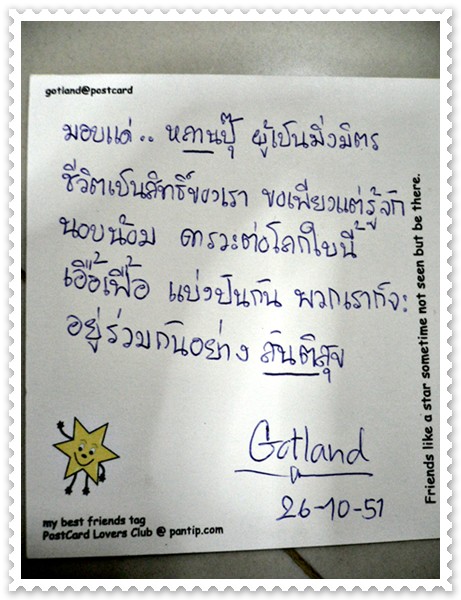 gotland@postcard
มอบแด่.. หลานปุ๊ ผู้เป็นมิ่งมิตร
ชีวิตเป็นสิทธิ์ของเรา ขอเพียงแต่รู้จัก
นอบน้อม คารวะต่อโลกใบนี้
เอื้อเฟื้อ แบ่งปันกัน พวกเราก็จะ
อยู่ร่วมกันอย่าง สันติสุข
Gotland
26-10-51
my best friends tag
PostCard Lovers Club @ pantip.com
Friends like a star sometime not seen but be there.